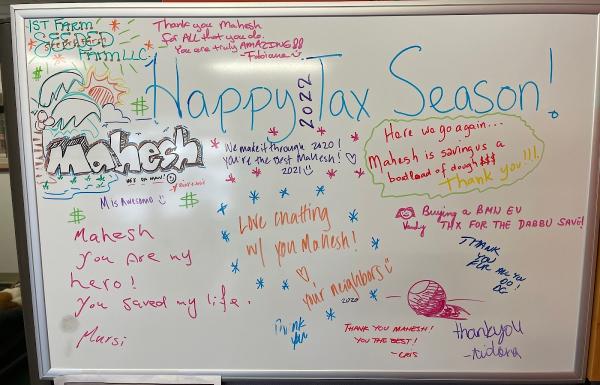 1ST FARM
SEEDED
FARM LLC.
Thank you Mahesh
for All that you do.
You are truly AMAZING!!
-Fabiane
Happy Tax Season!
2022
$
$
Mahesh
We make it through 2020!
you're the Best Mahesh! ♡
2021
Here we go again...
Mahesh is saving us a
boatload of dough $$$
Thank you!!!
M is Awesome
$
$
Mahesh
you are my
hero!
you saved my life.
Mursi
Love chatting
w/ you Mahesh!
♡ your neighbors
2020
Buying a BMW EV
THX FOR THE DABBU SAVE!
THANK
YOU
FOR ALL YOU
DO!
Thank
you
THANK YOU MAHESH!
YOU THE BEST!
-CRIS
thank you